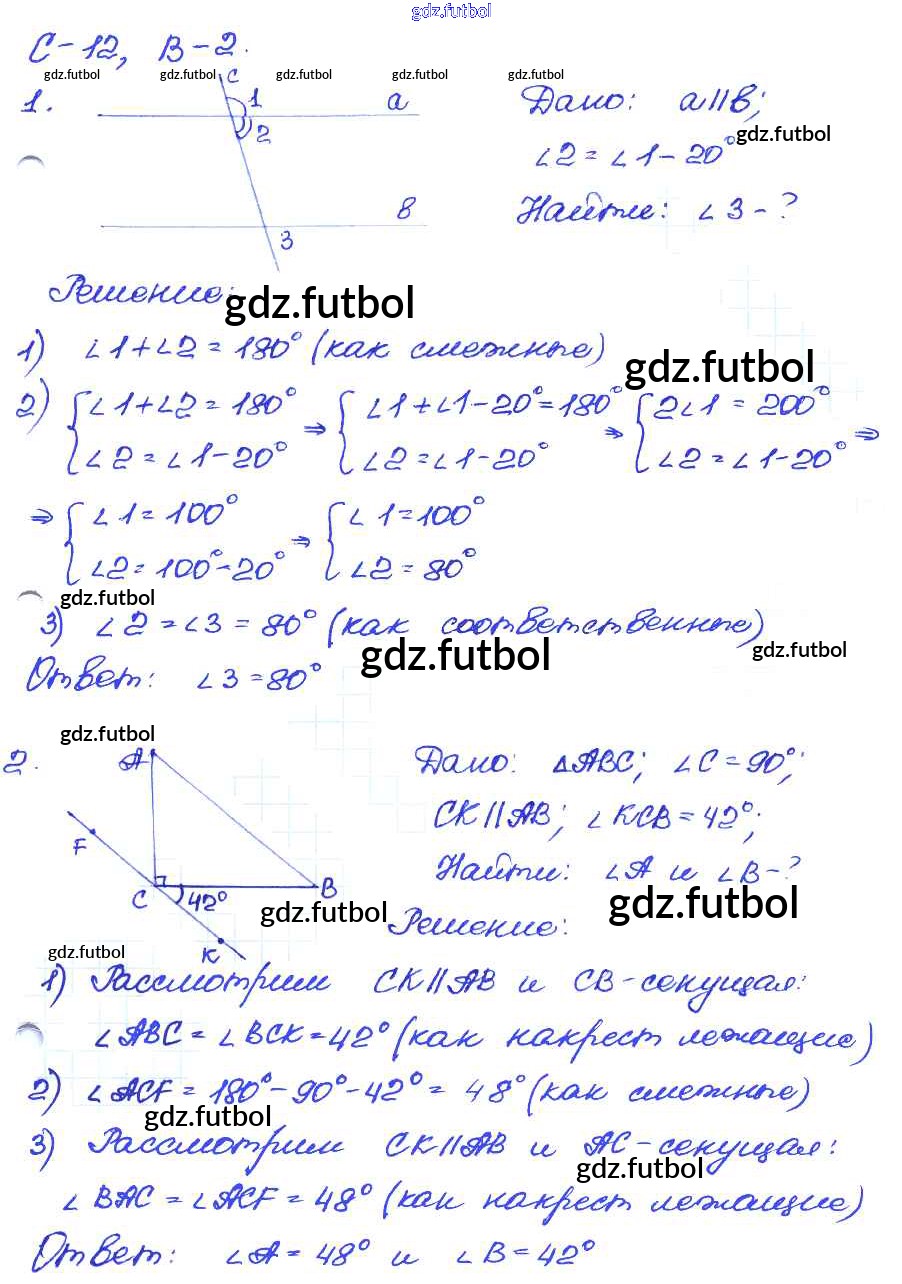 gdz.futbol
С-12, В-2.
gdz.futbol gdz.futbol gdz.futbol gdz.futbol gdz.futbol
1. c 1 a 2 в 3
Дано: a||в;
∠2 = ∠1 - 20° gdz.futbol
Найти: ∠3 - ?
Решение: gdz.futbol
1) ∠1 + ∠2 = 180° (как смежные)
gdz.futbol
2) { ∠1 + ∠2 = 180° ⇒ { ∠1 + ∠1 - 20° = 180° ⇒ { 2∠1 = 200°
∠2 = ∠1 - 20° ∠2 = ∠1 - 20° ∠2 = ∠1 - 20° ⇒
⇒ { ∠1 = 100° ⇒ { ∠1 = 100°
∠2 = 100° - 20° ∠2 = 80°
gdz.futbol
3) ∠2 = ∠3 = 80° (как соответственные)
gdz.futbol gdz.futbol
Ответ: ∠3 = 80°
gdz.futbol
2. A F C 42° B K
Дано: △ABC; ∠C = 90°;
CK||AB; ∠KCB = 42°;
Найти: ∠A и ∠B - ?
gdz.futbol gdz.futbol
Решение:
gdz.futbol
1) Рассмотрим CK||AB и CB - секущая:
∠ABC = ∠BCK = 42° (как накрест лежащие)
2) ∠ACF = 180° - 90° - 42° = 48° (как смежные)
gdz.futbol
3) Рассмотрим CK||AB и AC - секущая:
gdz.futbol
∠BAC = ∠ACF = 48° (как накрест лежащие)
Ответ: ∠A = 48° и ∠B = 42°